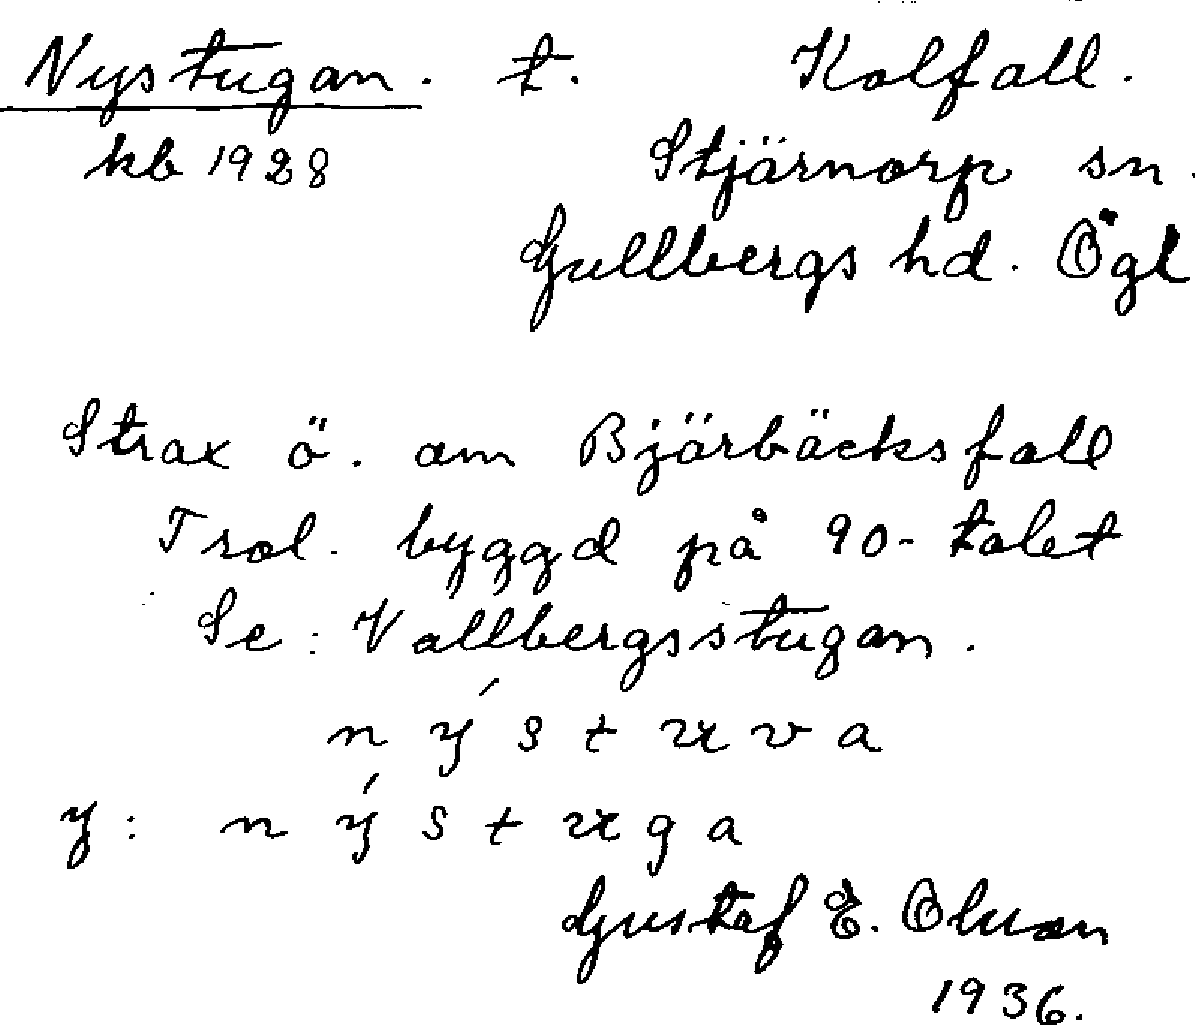 Nystugan. t. Kolfall.
kb 1928 Stjärnorp sn.
Gullbergs hd. Ögl
Strax ö. om Björbäcksfall
Trol. byggd på 90-talet
Se: Vallbergsstugan.
n ý s t u v a
y: n ý s t u g a
Gustaf E. Olsson
1936.